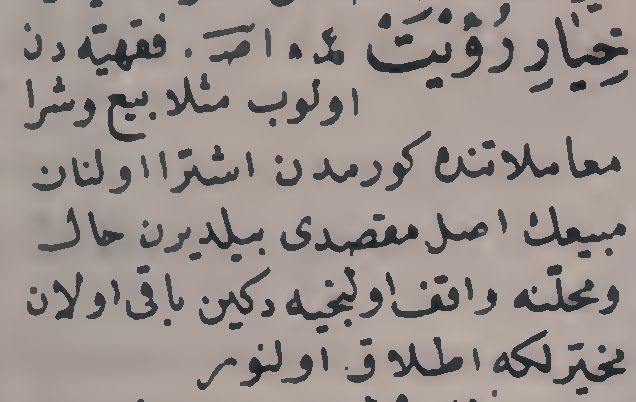 خِيَارِ رُؤْيَتْ مده اصـ. فقهيه دن
اولوب مثلا بيع وشرا
معاملاتنده كورمدن اشترا اولنان
مبيعك اصل مقصدى بيلديرن حال
ومحلنه واقف اولنجيه دكين باقى اولان
مخيرلكه اطلاق اولنور